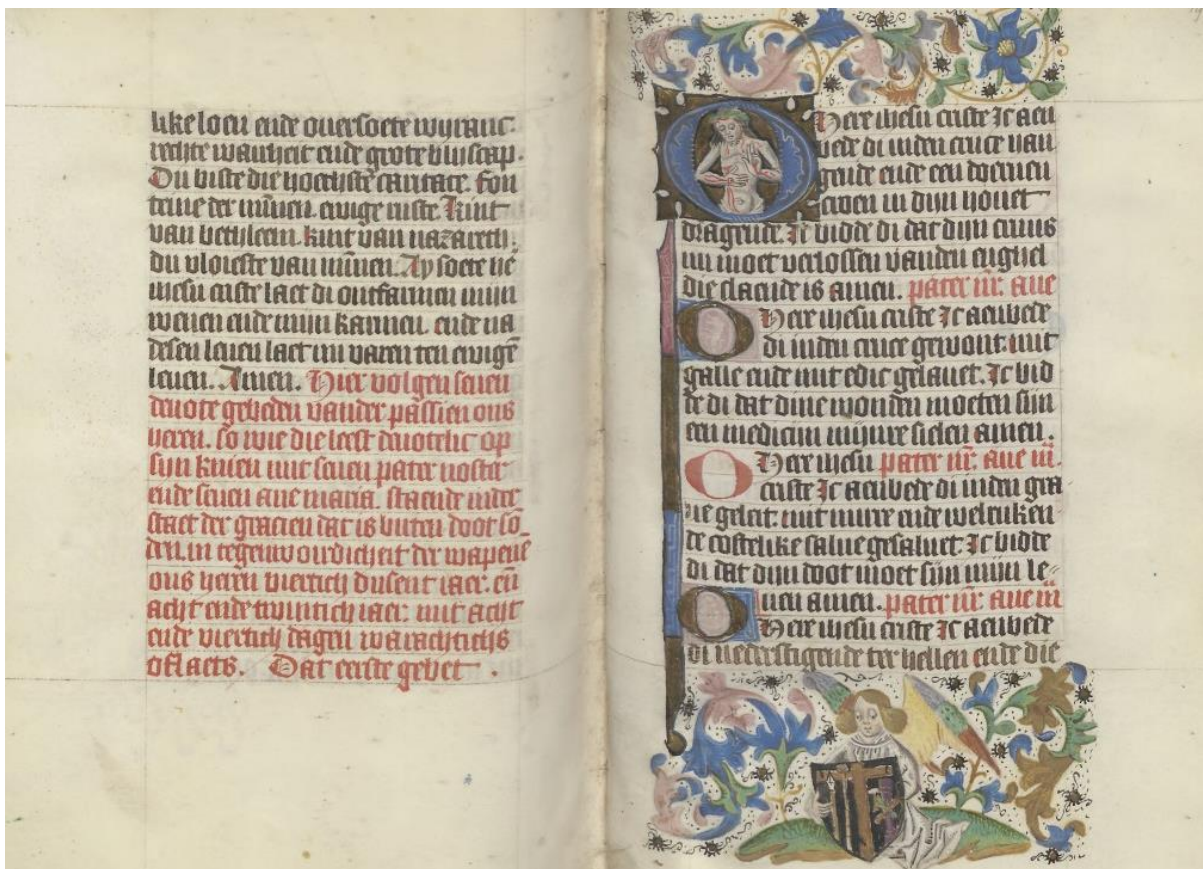 like locu ende ouersoete wyrauc
rechte waerheit ende grote blyscap.
Du biste die hoechste caritate. fon
teine der minnen. ewige ruste. kint
van bethleem. kint van nazareth.
du vloieste van minnen. Ay soete he
ihesu criste laet di ontfarmen mijn
wenen ende mijn karmen. ende na
desen leuen laet mi varen ten ewigē
leuen. Amen. Hier volgen seuen
deuote gebeden vander passien ons
heren. so wie die leest deuotelic op
sijn knien mit seuen pater noster
ende seuen aue maria. staende inder
staet der gracien dat is buten doot sō
den. in tegenwoirdicheit der wapenē
ons heren viertich dusent iaer. eñ
acht ende twintich iaer. mit acht
ende viertich dagen warachtichs
oflaets. Dat eerste gebet
O Here ihesu criste Ic aen
bede di inden cruce han
gende ende een doernen
croen in dijn houet
dragende. Ic bidde di dat dijn cruus
mi moet verlossen vanden enghel
die slaende is amen. pater nr. aue
O Here ihesu criste Ic aenbede
di inden cruce gewont. mit
galle ende mit edic gelauet. Ic bid
de di dat dine wonden moeten sijn
een medicijn mijnre sielen amen.
O Here ihesu pater nr. aue m.
criste Ic aenbede di inden gra
ue geleit. mit mirre ende welruken
de costelike salue gesaluet. Ic bidde
di dat dijn doot moet sijn mijn le
uen amen. pater nr. aue m
O Here ihesu criste Ic aenbede
di nederstigende ter hellen ende die